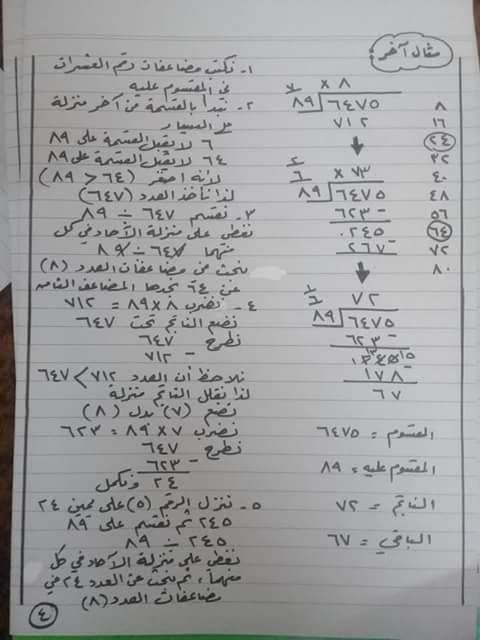 مثال آخر:
١- نكتب مضاعفات رقم العشرات
في المقسوم عليه
٢- نبدأ بالقسمة من آخر منزلة
على اليسار
٦ لا يقبل القسمة على ٨٩
٦٤ لا يقبل القسمة على ٨٩
لأنه أصغر (٦٤ < ٨٩)
لذا نأخذ العدد (٦٤٧)
٣- نقسم ٦٤٧ ÷ ٨٩
نغطي على منزلة الآحاد في كل
منهما ٦٤٧ ÷ ٨٩
نبحث من مضاعفات العدد (٨)
عن ٦٤ نجدها المضاعف الثامن
٤- نضرب ٨ × ٨٩ = ٧١٢
نضع الناتج تحت ٦٤٧
نطرح ٦٤٧
- ٧١٢
نلاحظ أن العدد ٧١٢ > ٦٤٧
لذا نقلل الناتج منزلة
نضع (٧) بدل (٨)
نضرب ٧ × ٨٩ = ٦٢٣
نطرح ٦٤٧
٦٢٣ -
٢٤ ونكمل
٥- ننزل الرقم (٥) على يمين ٢٤
٢٤٥ ثم نقسم على ٨٩
٢٤٥ ÷ ٨٩
نغطي على منزلة الآحاد في كل
منهما، ثم نبحث عن العدد ٢٤ في
مضاعفات العدد (٨)
٧
× ٨
٨٩ ٦٤٧٥
٧١٢
٢
٦
× ٧٣
٨٩ ٦٤٧٥
٦٢٣ -
٠٢٤٥
٢٦٧ -
١
٦
٧٢
٨٩ ٦٤٧٥
٦٢٣ -
١٧٨ -
٦٧
٨
١٦
٢٤
٣٢
٤٠
٤٨
٥٦
٦٤
٧٢
٨٠
المقسوم = ٦٤٧٥
المقسوم عليه = ٨٩
الناتج = ٧٢
الباقي = ٦٧
٤